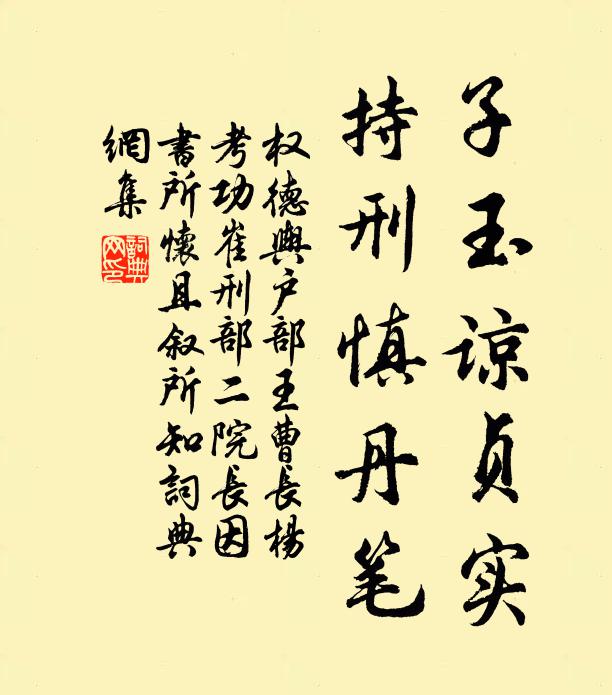 子玉谅贞实
持刑慎丹笔
权德舆户部王曹长杨
考功崔刑部二院长因
書所懷且叙所知詞典
網集
詞典
网印